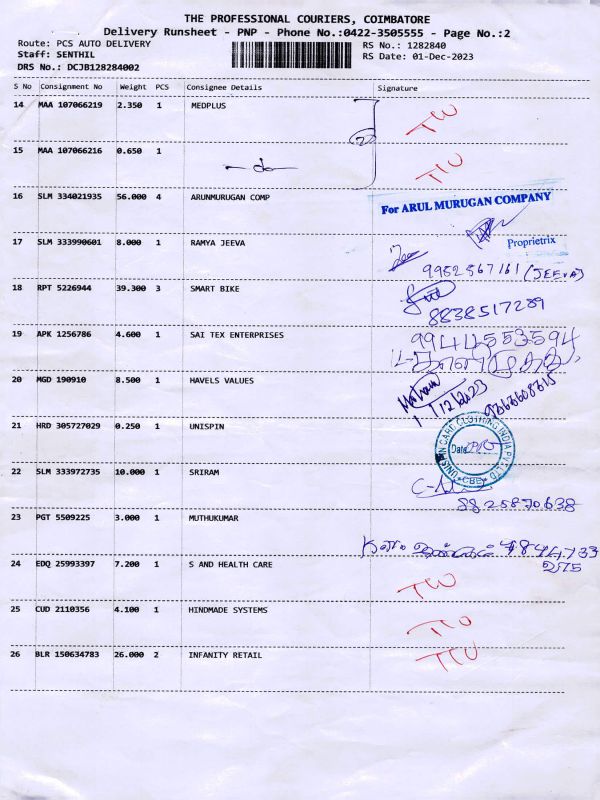 THE PROFESSIONAL COURIERS, COIMBATORE
Delivery Runsheet - PNP - Phone No.:0422-3505555 - Page No.:2
Route: PCS AUTO DELIVERY
RS No.: 1282840
Staff: SENTHIL
RS Date: 01-Dec-2023
DRS No.: DCJB128284002
S No Consignment No Weight PCS Consignee Details Signature
14 MAA 107066219 2.350 1 MEDPLUS
15 MAA 107066216 0.650 1
16 SLM 334021935 56.000 4 ARUNMURUGAN COMP
For ARUL MURUGAN COMPANY
Proprietrix
17 SLM 333990601 8.000 1 RAMYA JEEVA
9952567161 (JEEVA)
18 RPT 5226944 39.300 3 SMART BIKE
8838517289
19 APK 1256786 4.600 1 SAI TEX ENTERPRISES
9944553594
20 MGD 190910 8.500 1 HAVELS VALUES
1/12/2023
21 HRD 305727029 0.250 1 UNISPIN
Date
CBE
22 SLM 333972735 10.000 1 SRIRAM
8825870638
23 PGT 5509225 3.000 1 MUTHUKUMAR
24 EDQ 25993397 7.200 1 S AND HEALTH CARE
25 CUD 2110356 4.100 1 HINDMADE SYSTEMS
26 BLR 150634783 26.000 2 INFANITY RETAIL